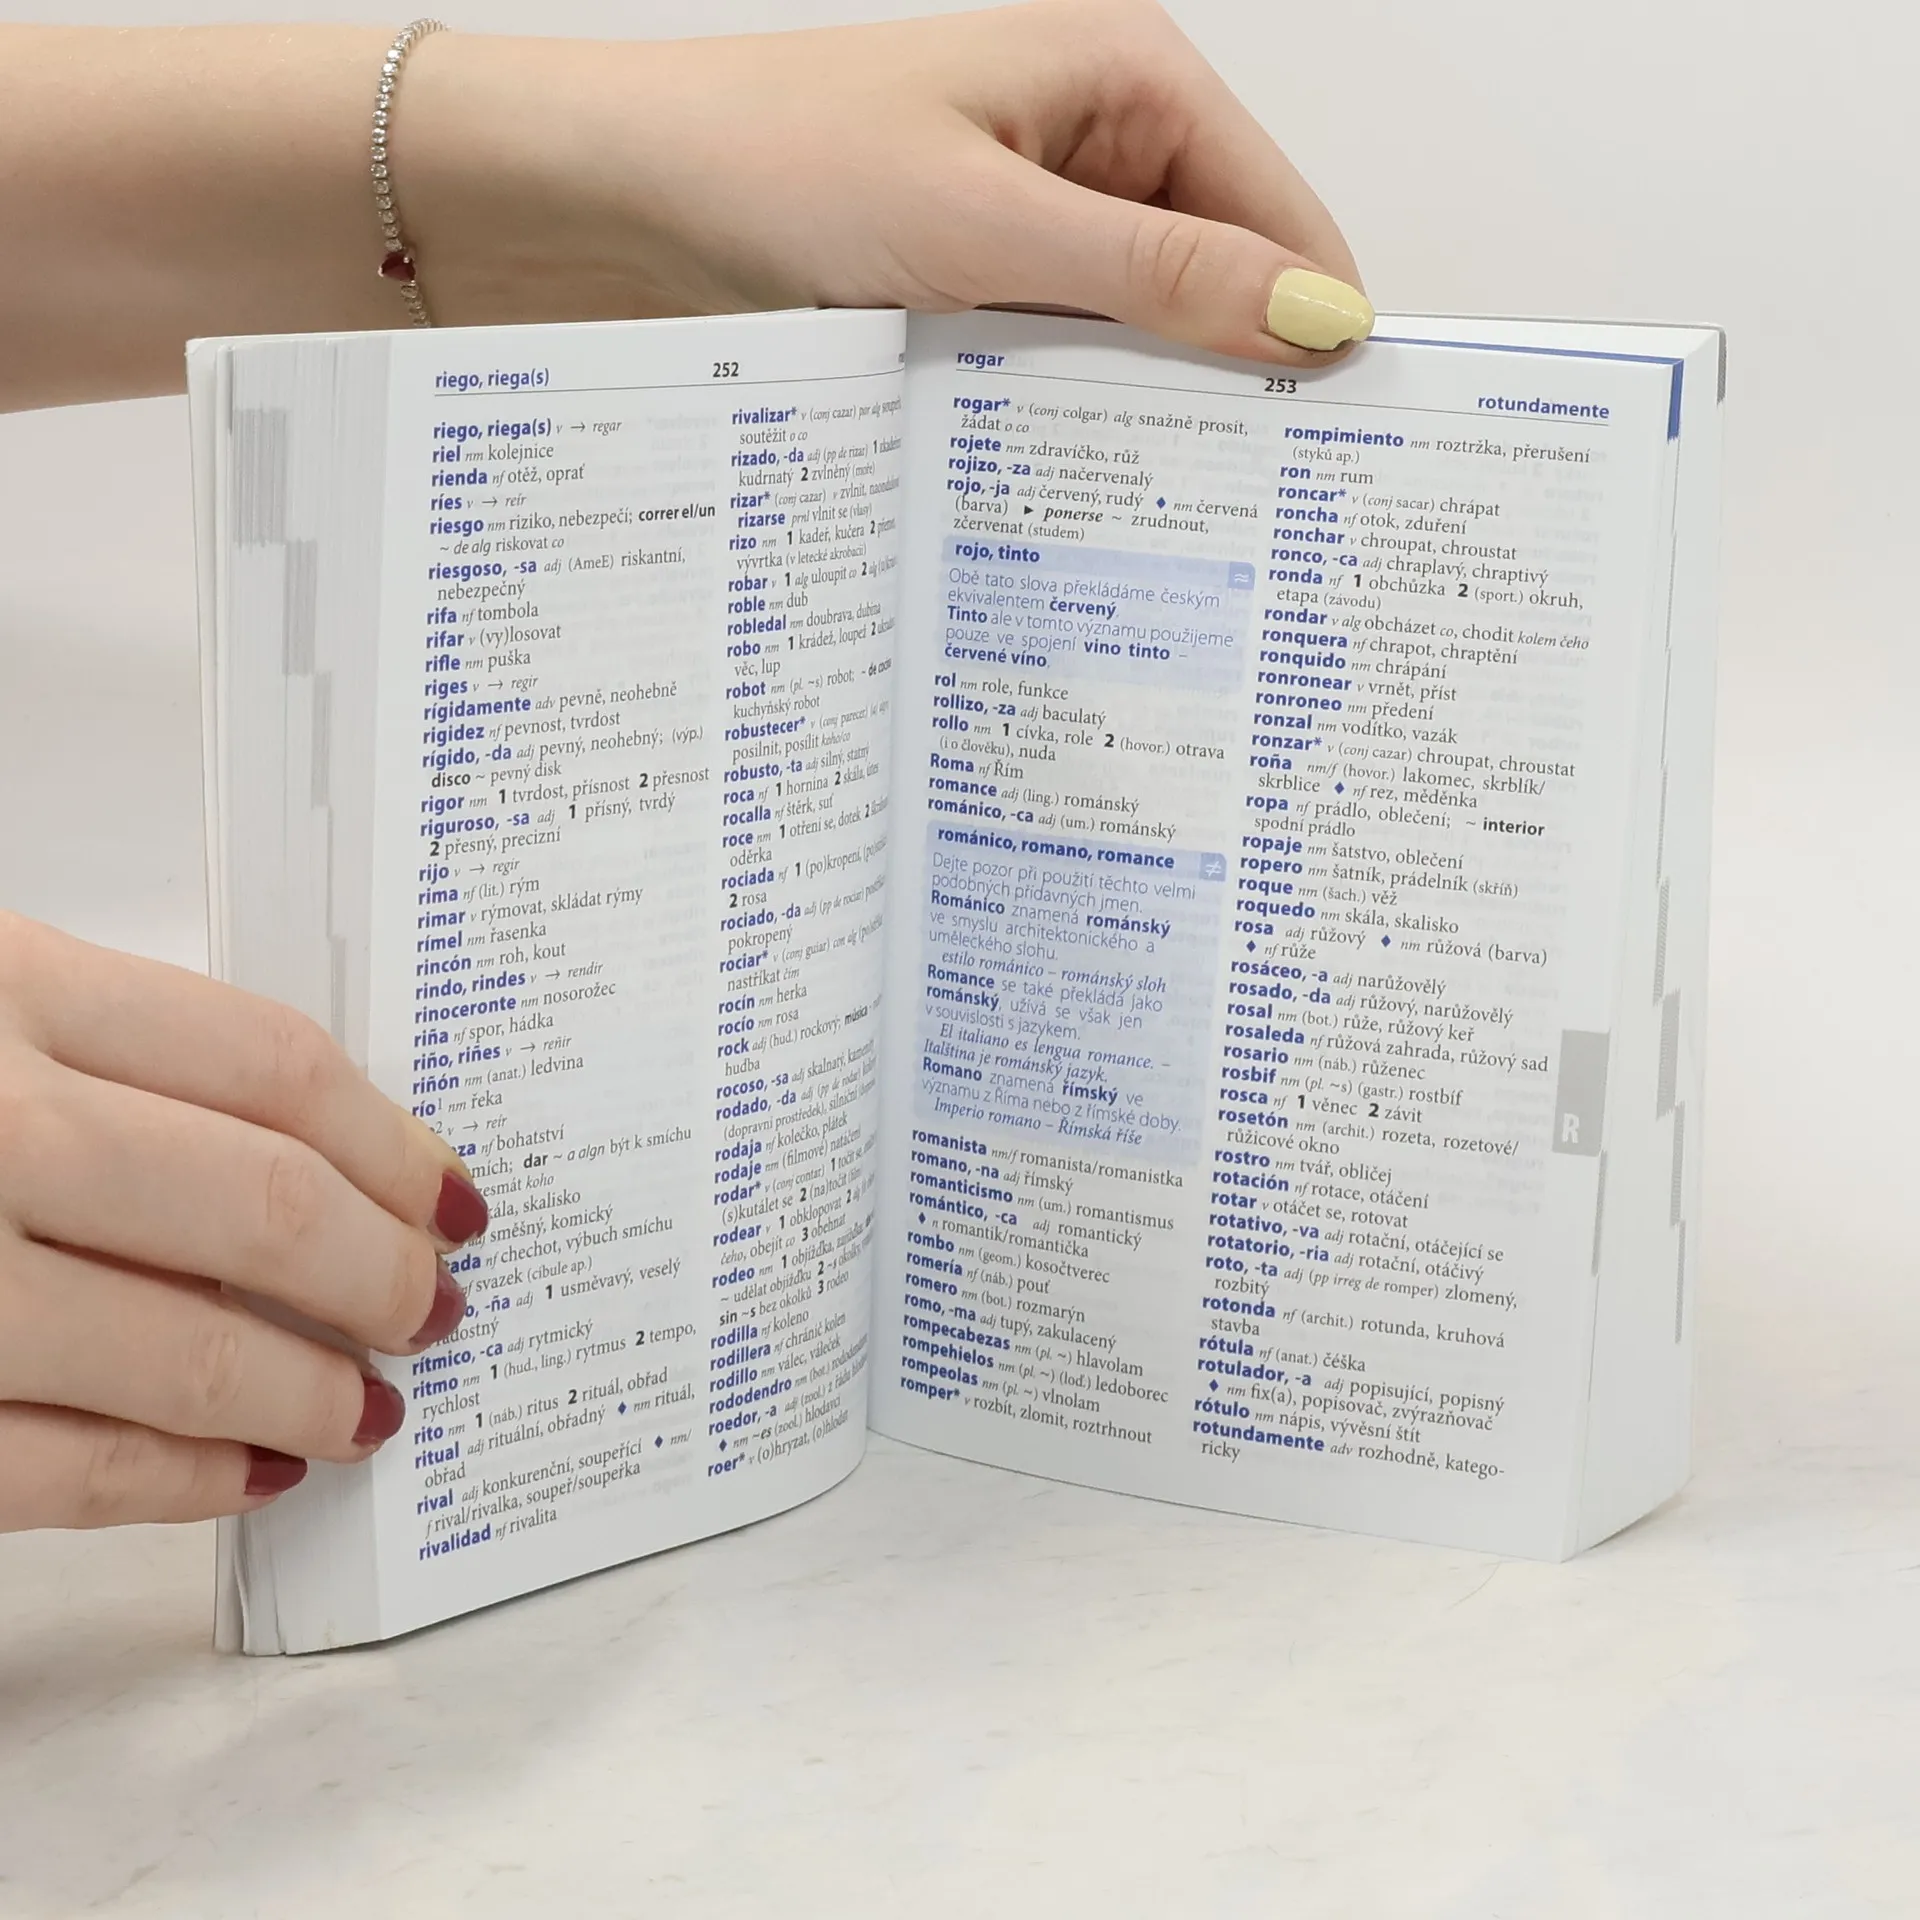 riego, riega(s)
252
riego, riega(s) v → regar
riel nm kolejnice
rienda nf otěž, oprať
ríes v → reír
riesgo nm riziko, nebezpečí; correr el/un
~ de alg riskovat co
riesgoso, -sa adj (AmE) riskantní,
nebezpečný
rifa nf tombola
rifar v (vy)losovat
rifle nm puška
riges v → regir
rígidamente adv pevně, neohebně
rigidez nf pevnost, tvrdost
rígido, -da adj pevný, neohebný; (výp.)
disco ~ pevný disk
rigor nm 1 tvrdost, přísnost 2 přesnost
riguroso, -sa adj 1 přísný, tvrdý
2 přesný, precizní
rijo v → regir
rima nf (lit.) rým
rimar v rýmovat, skládat rýmy
rímel nm řasenka
rincón nm roh, kout
rindo, rindes v → rendir
rinoceronte nm nosorožec
riña nf spor, hádka
riño, riñes v → reñir
riñón nm (anat.) ledvina
río¹ nm řeka
² v → reír
nf bohatství
dar ~ a algn být k smíchu
koho
skalisko
směšný, komický
nf chechot, výbuch smíchu
nf svazek (cibule ap.)
-ña adj 1 usměvavý, veselý
rítmico, -ca adj rytmický
ritmo nm 1 (hud., ling.) rytmus 2 tempo,
rychlost
rito nm 1 (náb.) ritus 2 rituál, obřad
ritual adj rituální, obřadný ♦ nm rituál,
obřad
rival adj konkurenční, soupeřící ♦ nm/
f rival/rivalka, soupeř/soupeřka
rivalidad nf rivalita
rivalizar* v (conj cazar) por alg
soutěžit o co
rizado, -da adj (pp de rizar) 1
kudrnatý 2 zvlněný (moře)
rizar* (conj cazar) v zvlnit,
rizarse prnl vlnit se (vlasy)
rizo nm 1 kadeř, kučera 2
vývrtka (v letecké akrobacii)
robar v 1 alg uloupit co 2
roble nm dub
robledal nm doubrava, dubina
robo nm 1 krádež, loupež 2
věc, lup
robot nm (pl. ~s) robot; ~ de cocina
kuchyňský robot
robustecer* v (conj parecer)
posilnit, posílit koho/co
robusto, -ta adj silný, statný
roca nf 1 hornina 2 skála, útes
rocalla nf štěrk, suť
roce nm 1 otření se, dotek 2
oděrka
rociada nf 1 (po)kropení,
2 rosa
rociado, -da adj (pp de rociar)
pokropený
rociar* v (conj guiar) con alg
nastříkat čím
rocín nm herka
rocío nm rosa
rock adj (hud.) rockový; música ~
hudba
rocoso, -sa adj skalnatý, kamenitý
rodado, -da adj (pp de rodar)
(dopravní prostředek), silniční
rodaja nf kolečko, plátek
rodaje nm (filmové) natáčení
rodar* v (conj contar) 1 točit se,
(s)kutálet se 2 (na)točit (film)
rodear v 1 obklopovat, 2 alg
čeho, obejít co 3 obehnat
rodeo nm 1 objížďka, zajížďka;
~ udělat objížďku 2 ~s okolky,
sin ~s bez okolků 3 rodeo
rodilla nf koleno
rodillera nf chránič kolen
rodillo nm válec, váleček
rododendro nm (bot.) rododendron
roedor, -a adj (zool.) z řádu
♦ nm ~es (zool.) hlodavci
roer* v (o)hryzat, (o)hlodat
rogar
253
rotundamente
rogar* v (conj colgar) alg snažně prosit,
žádat o co
rojete nm zdravíčko, růž
rojizo, -za adj načervenalý
rojo, -ja adj červený, rudý ♦ nm červená
(barva) ► ponerse ~ zrudnout,
zčervenat (studem)
rojo, tinto
≈
Obě tato slova překládáme českým
ekvivalentem červený.
Tinto ale v tomto významu použijeme
pouze ve spojení vino tinto –
červené víno.
rol nm role, funkce
rollizo, -za adj baculatý
rollo nm 1 cívka, role 2 (hovor.) otrava
(i o člověku), nuda
Roma nf Řím
romance adj (ling.) románský
románico, -ca adj (um.) románský
románico, romano, romance
≠
Dejte pozor při použití těchto velmi
podobných přídavných jmen.
Románico znamená románský
ve smyslu architektonického a
uměleckého slohu.
estilo románico – románský sloh
Romance se také překládá jako
románský, užívá se však jen
v souvislosti s jazykem.
El italiano es lengua romance. –
Italština je románský jazyk.
Romano znamená římský ve
významu z Říma nebo z římské doby.
Imperio romano – Římská říše
romanista nm/f romanista/romanistka
romano, -na adj římský
romanticismo nm (um.) romantismus
romántico, -ca adj romantický
♦ n romantik/romantička
rombo nm (geom.) kosočtverec
romería nf (náb.) pouť
romero nm (bot.) rozmarýn
romo, -ma adj tupý, zakulacený
rompecabezas nm (pl. ~) hlavolam
rompehielos nm (pl. ~) (loď.) ledoborec
rompeolas nm (pl. ~) vlnolam
romper* v rozbít, zlomit, roztrhnout
rompimiento nm roztržka, přerušení
(styků ap.)
ron nm rum
roncar* v (conj sacar) chrápat
roncha nf otok, zduření
ronchar v chroupat, chroustat
ronco, -ca adj chraplavý, chraptivý
ronda nf 1 obchůzka 2 (sport.) okruh,
etapa (závodu)
rondar v alg obcházet co, chodit kolem čeho
ronquera nf chrapot, chraptění
ronquido nm chrápání
ronronear v vrnět, příst
ronroneo nm předení
ronzal nm vodítko, vazák
ronzar* v (conj cazar) chroupat, chroustat
roña nm/f (hovor.) lakomec, skrblík/
skrblice ♦ nf rez, měděnka
ropa nf prádlo, oblečení; ~ interior
spodní prádlo
ropaje nm šatstvo, oblečení
ropero nm šatník, prádelník (skříň)
roque nm (šach.) věž
roquedo nm skála, skalisko
rosa adj růžový ♦ nm růžová (barva)
♦ nf růže
rosáceo, -a adj narůžovělý
rosado, -da adj růžový, narůžovělý
rosal nm (bot.) růže, růžový keř
rosaleda nf růžová zahrada, růžový sad
rosario nm (náb.) růženec
rosbif nm (pl. ~s) (gastr.) rostbíf
rosca nf 1 věnec 2 závit
rosetón nm (archit.) rozeta, rozetové/
růžicové okno
rostro nm tvář, obličej
rotación nf rotace, otáčení
rotar v otáčet se, rotovat
rotativo, -va adj rotační, otáčející se
rotatorio, -ria adj rotační, otáčivý
roto, -ta adj (pp irreg de romper) zlomený,
rozbitý
rotonda nf (archit.) rotunda, kruhová
stavba
rótula nf (anat.) čéška
rotulador, -a adj popisující, popisný
♦ nm fix(a), popisovač, zvýrazňovač
rótulo nm nápis, vývěsní štít
rotundamente adv rozhodně, katego-
ricky
R